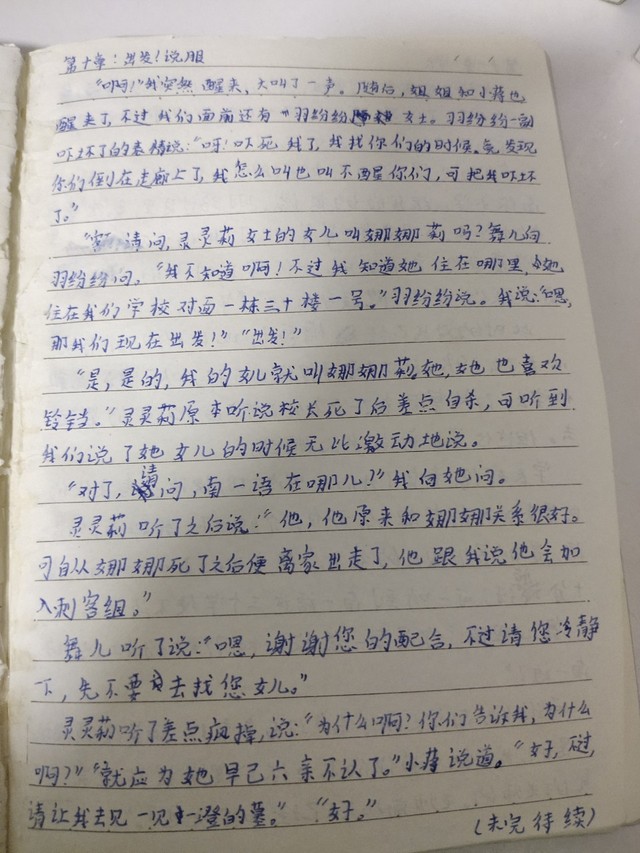 第十章：出发！说服
“啊！”我突然醒来，大叫了一声。随后，姐姐和小蒋也
醒来了，不过我们面前还有《羽纷纷》女士。羽纷纷一副
吓坏了的表情说：“呀！吓死我了，我找你们的时候。竟发现
你们倒在走廊上了，我怎么叫也叫不醒你们，可把我吓坏
了。”
“请问，灵灵莉女士的女儿叫娜娜莉吗？舞儿向
羽纷纷问。“我不知道啊！不过我知道她住在哪里，她
住在我们学校对面一栋三十楼一号。”羽纷纷说。我说：“嗯，
那我们现在出发！”“出发！”
“是，是的，我的女儿就叫娜娜莉，她，她也喜欢
铃铛。”灵灵莉原本听说校长死了后差点自杀，可听到
我们说了她女儿的时候无比激动地说。
“对了，请问，南一语在哪儿？”我向她问。
灵灵莉听了之后说：“他，他原来和娜娜关系很好。
可自从娜娜死了之后便离家出走了，他跟我说他会加
入刺客组。”
舞儿听了说：“嗯，谢谢您的配合，不过请您冷静
下，先不要去找您女儿。”
灵灵莉听了差点疯掉，说：“为什么啊？你们告诉我，为什么
啊？”“就应为她早已六亲不认了。”小蒋说道。“好，不过，
请让我去见一见澄的墓。”“好。”
（未完待续）